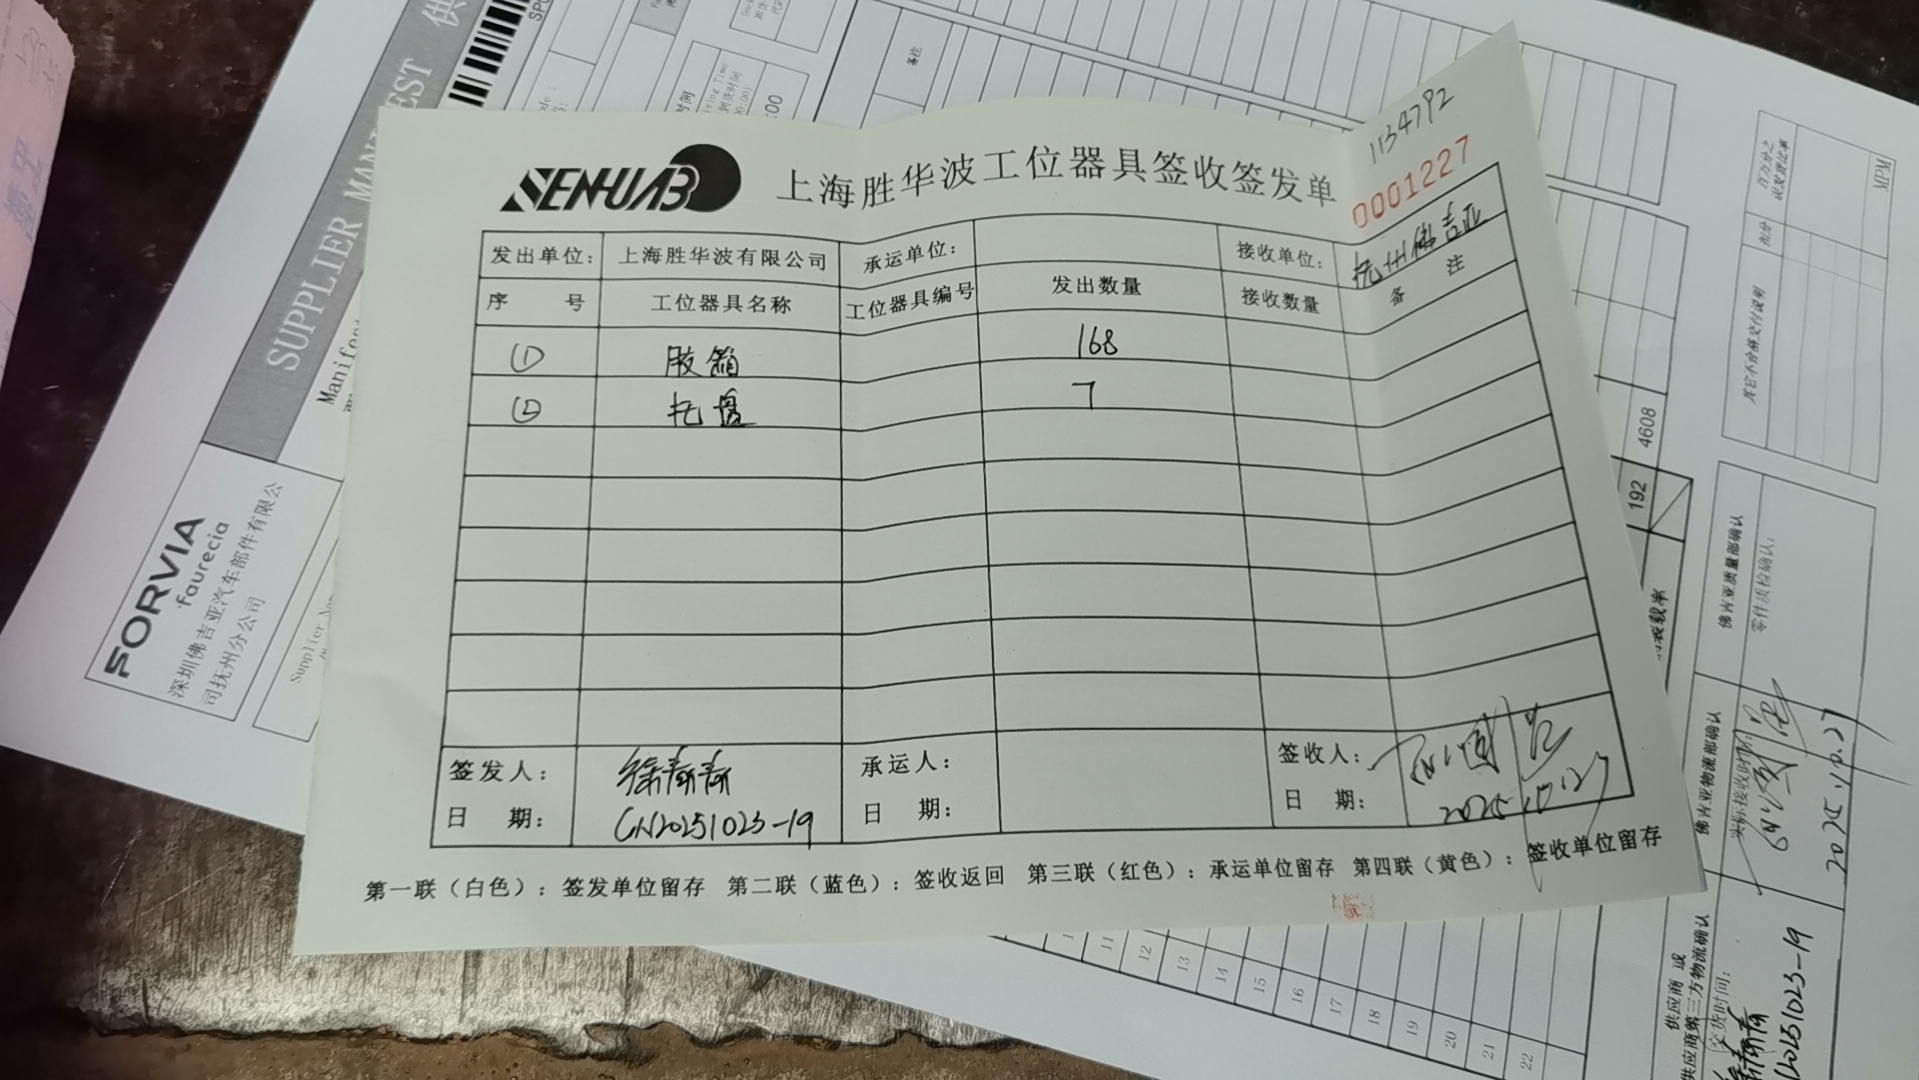 1134792
SENHUAB
上海胜华波工位器具签收签发单
0001227
发出单位: 上海胜华波有限公司 承运单位: 接收单位: 抚州佛吉亚
序 号 工位器具名称 工位器具编号 发出数量 接收数量 备 注
① 胶箱 168
② 托盘 7
签发人: 徐春春 承运人: 签收人:
日 期: CN20251023-19 日 期: 日 期: 2025.10.27
第一联(白色): 签发单位留存 第二联(蓝色): 签收返回 第三联(红色): 承运单位留存 第四联(黄色): 签收单位留存
SUPPLIER MAN
EST 供
FORVIA
faurecia
深圳佛吉亚汽车部件有限公
司抚州分公司
备注
到货时间
百万分之
MPM
扣分
其它不合格交付说明
4608
192
装载率
佛吉亚质量部确认
零件质检确认:
佛吉亚物流部确认
实际接收时间:
2025.10.27
供应商 或
供应商第三方物流确认
交货时间:
20251023-19
11
12
13
14
15
16
17
18
19
20
21
22